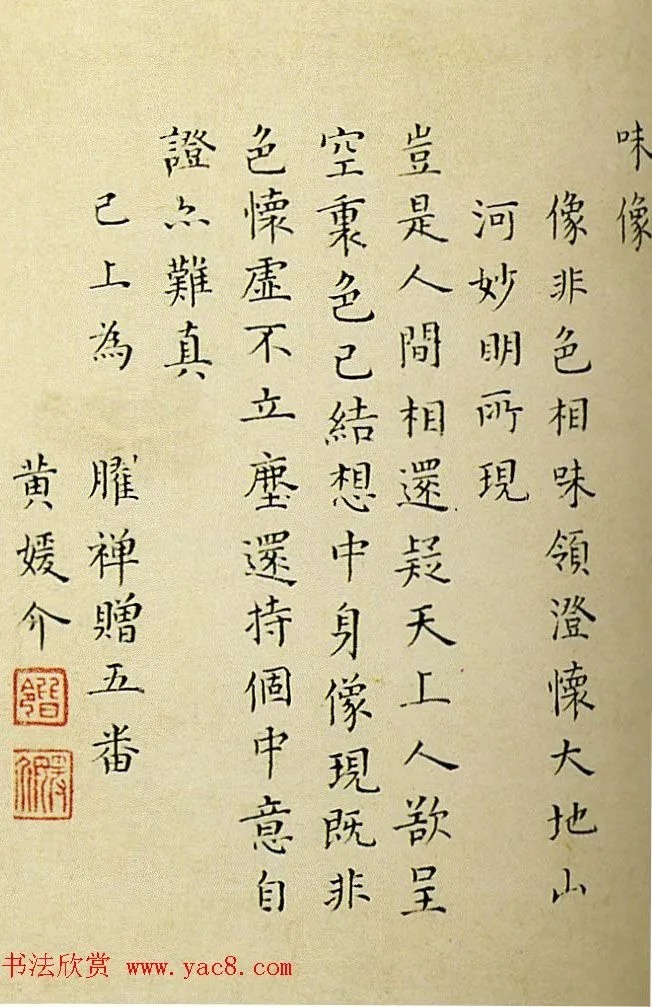 味像
像非色相味領澄懷大地山
河妙明所現
豈是人間相還疑天上人欻呈
空裏色已結想中身像現既非
色懷虛不立塵還持個中意自
證亦難真
已上為 臞禅贈五番
黄媛介
书法欣赏 www.yac8.com